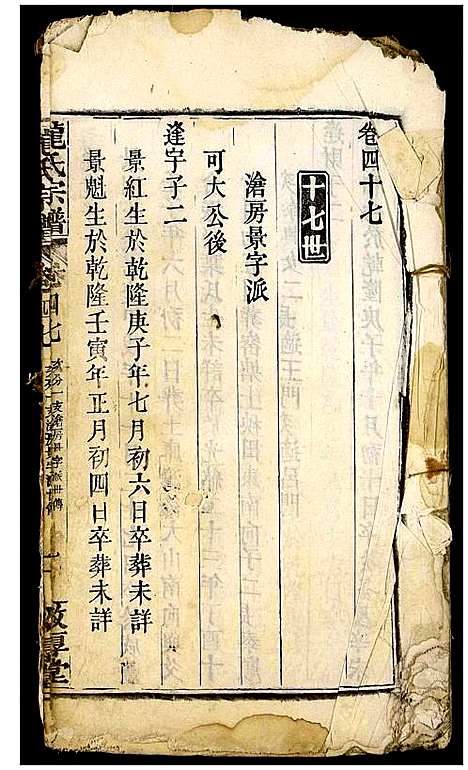 卷四十七
十七世
滄房景字派
可大公後
逢宇子二
景紅生於乾隆庚子年七月初六日卒葬未詳
景魁生於乾隆壬寅年正月初四日卒葬未詳
龍氏宗譜
卷四七
敦厚堂